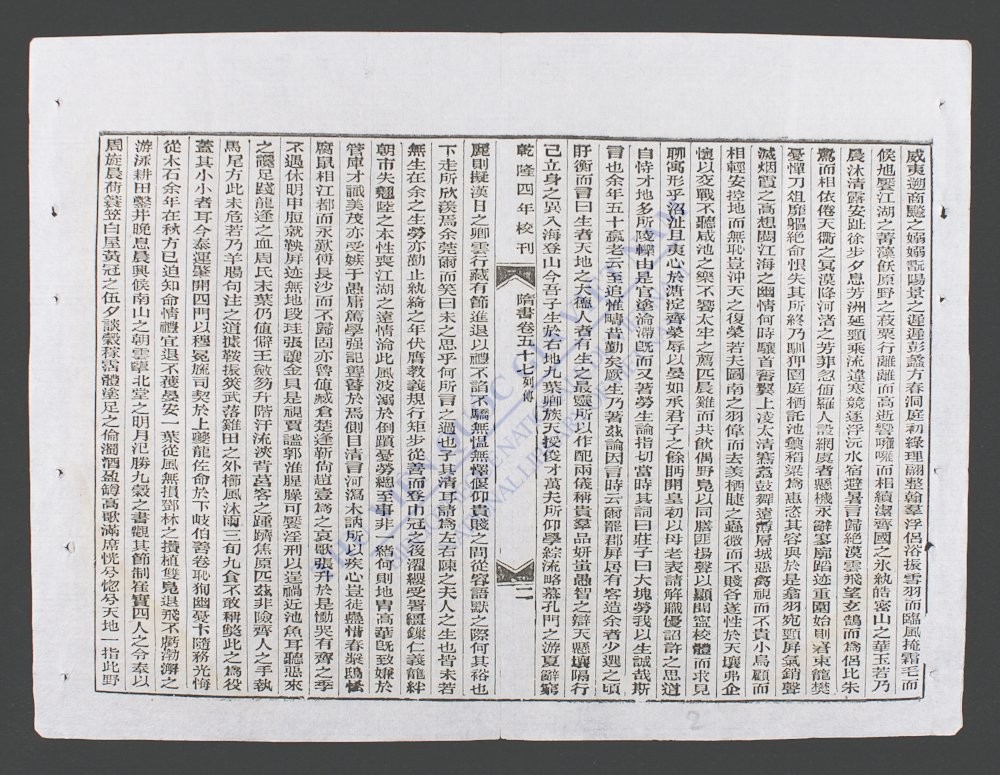 威夷遡商飈之嫋嫋翫陽景之遲遲彭蠡方春洞庭初綠理翮整翰羣浮侶浴振雪羽而臨風掩霜毛而
候旭饜江湖之菁藻飫原野之菽粟行離離而高逝響噰噰而相續潔齊國之氷紈皓密山之華玉若乃
晨沐清露安趾徐步夕息芳洲延頸乘流違寒競逐浮沅水宿避暑言歸絕漠雲飛望玄鵠而爲侶比朱
鷺而相依倦天衢之冥漠降河渚之芳菲忽値羅人設網虞者懸機永辭寥廓蹈迹重圍始則窘束籠樊
憂憚刀俎靡軀絕命恨失其所終乃馴狎園庭栖託池籞稻粱爲惠恣其容與於是翕羽宛頸屏氣銷聲
滅烟霞之高想悶江海之幽情何時驤首奮翼上凌太清騫翥鼓舞遠薄層城惡禽視而不貴小鳥顧而
相輕安控地而無恥豈沖天之復榮若夫圖南之羽偉而去羡栖睫之蟲微而不賤各遂性於天壤弗企
懷以交戰不聽咸池之樂不饗太牢之薦匹晨雞而共飲偶野鳧以同膳匪揚聲以顯聞寧校體而求見
聊寓形乎沼沚且夷心於溮淀齊榮辱以晏如承君子之餘眄開皇初以母老表請解職優詔許之思道
自恃才地多所陵轢由是官塗淪滯旣而又著勞生論指切當時其詞曰莊子曰大塊勞我以生誠哉斯
言也余年五十羸老云至追惟疇昔勤矣厥生乃著茲論因言時云爾罷郡屏居有客造余者少選之頃
盱衡而言曰生者天地之大德人者有生之最靈所以作配兩儀稱貴羣品妍蚩愚智之辯天懸壤隔行
己立身之異入海登山今吾子生於右地九葉卿族天授俊才萬夫所仰學綜流略慕孔門之游夏辭窮
乾隆四年校刊
隋書卷五十七列傳
二
麗則擬漢日之卿雲行藏有節進退以禮不諂不驕無慍無懌偃仰貴賤之間從容語默之際何其裕也
下走所欣羨焉余莞爾而笑曰未之思乎何所言之過也子其清耳請爲左右陳之夫人之生也皆未若
無生在余之生勞亦勤止紈綺之年伏膺教義規行矩步從善而登巾冠之後濯纓受署韁鏁仁義籠絆
朝市失翹陸之本性喪江湖之遠情淪此風波溺於倒躓憂勞總至事非一緒何則地胄高華旣致嫌於
管庫才識美茂亦受嫉于愚庸篤學強記聾瞽於焉側目清言河瀉木訥所以疾心豈徒蟲惜春漿鴟恡
腐鼠相江都而永歎傅長沙而不歸固亦魯値臧倉楚逢靳尚趙壹爲之哀歌張升於是慟哭有齊之季
不遇休明申脰就鞅屏迹無地段珪張讓金貝是視賈謐郭淮腥臊可饜淫刑以逞禍近池魚耳聽惡來
之讒足踐龍逢之血周氏末葉仍値僻王斂笏升階汗流浹背莒客之踵躋焦原匹茲非險齊人之手執
馬尾方此未危若乃羊腸句注之道據鞍振筴武落雞田之外櫛風沐雨三旬九食不敢稱弊此之爲役
蓋其小小者耳今泰運肇開四門以穆冕旒司契於上夔龍佐命於下岐伯善卷恥徇幽憂卞隨務光悔
從木石余年在秋方已迫知命情禮宜退不獲晏安一葉從風無損鄧林之攢植雙鳧退飛不虧渤澥之
游泳耕田鑿井晚息晨興候南山之朝雲擥北堂之明月氾勝九穀之書觀其節制崔寔四人之令奉以
周旋晨荷蓑笠白屋黃冠之伍夕談穀稼霑體塗足之倫濁酒盈罇高歌滿席恍兮惚兮天地一指此野
2